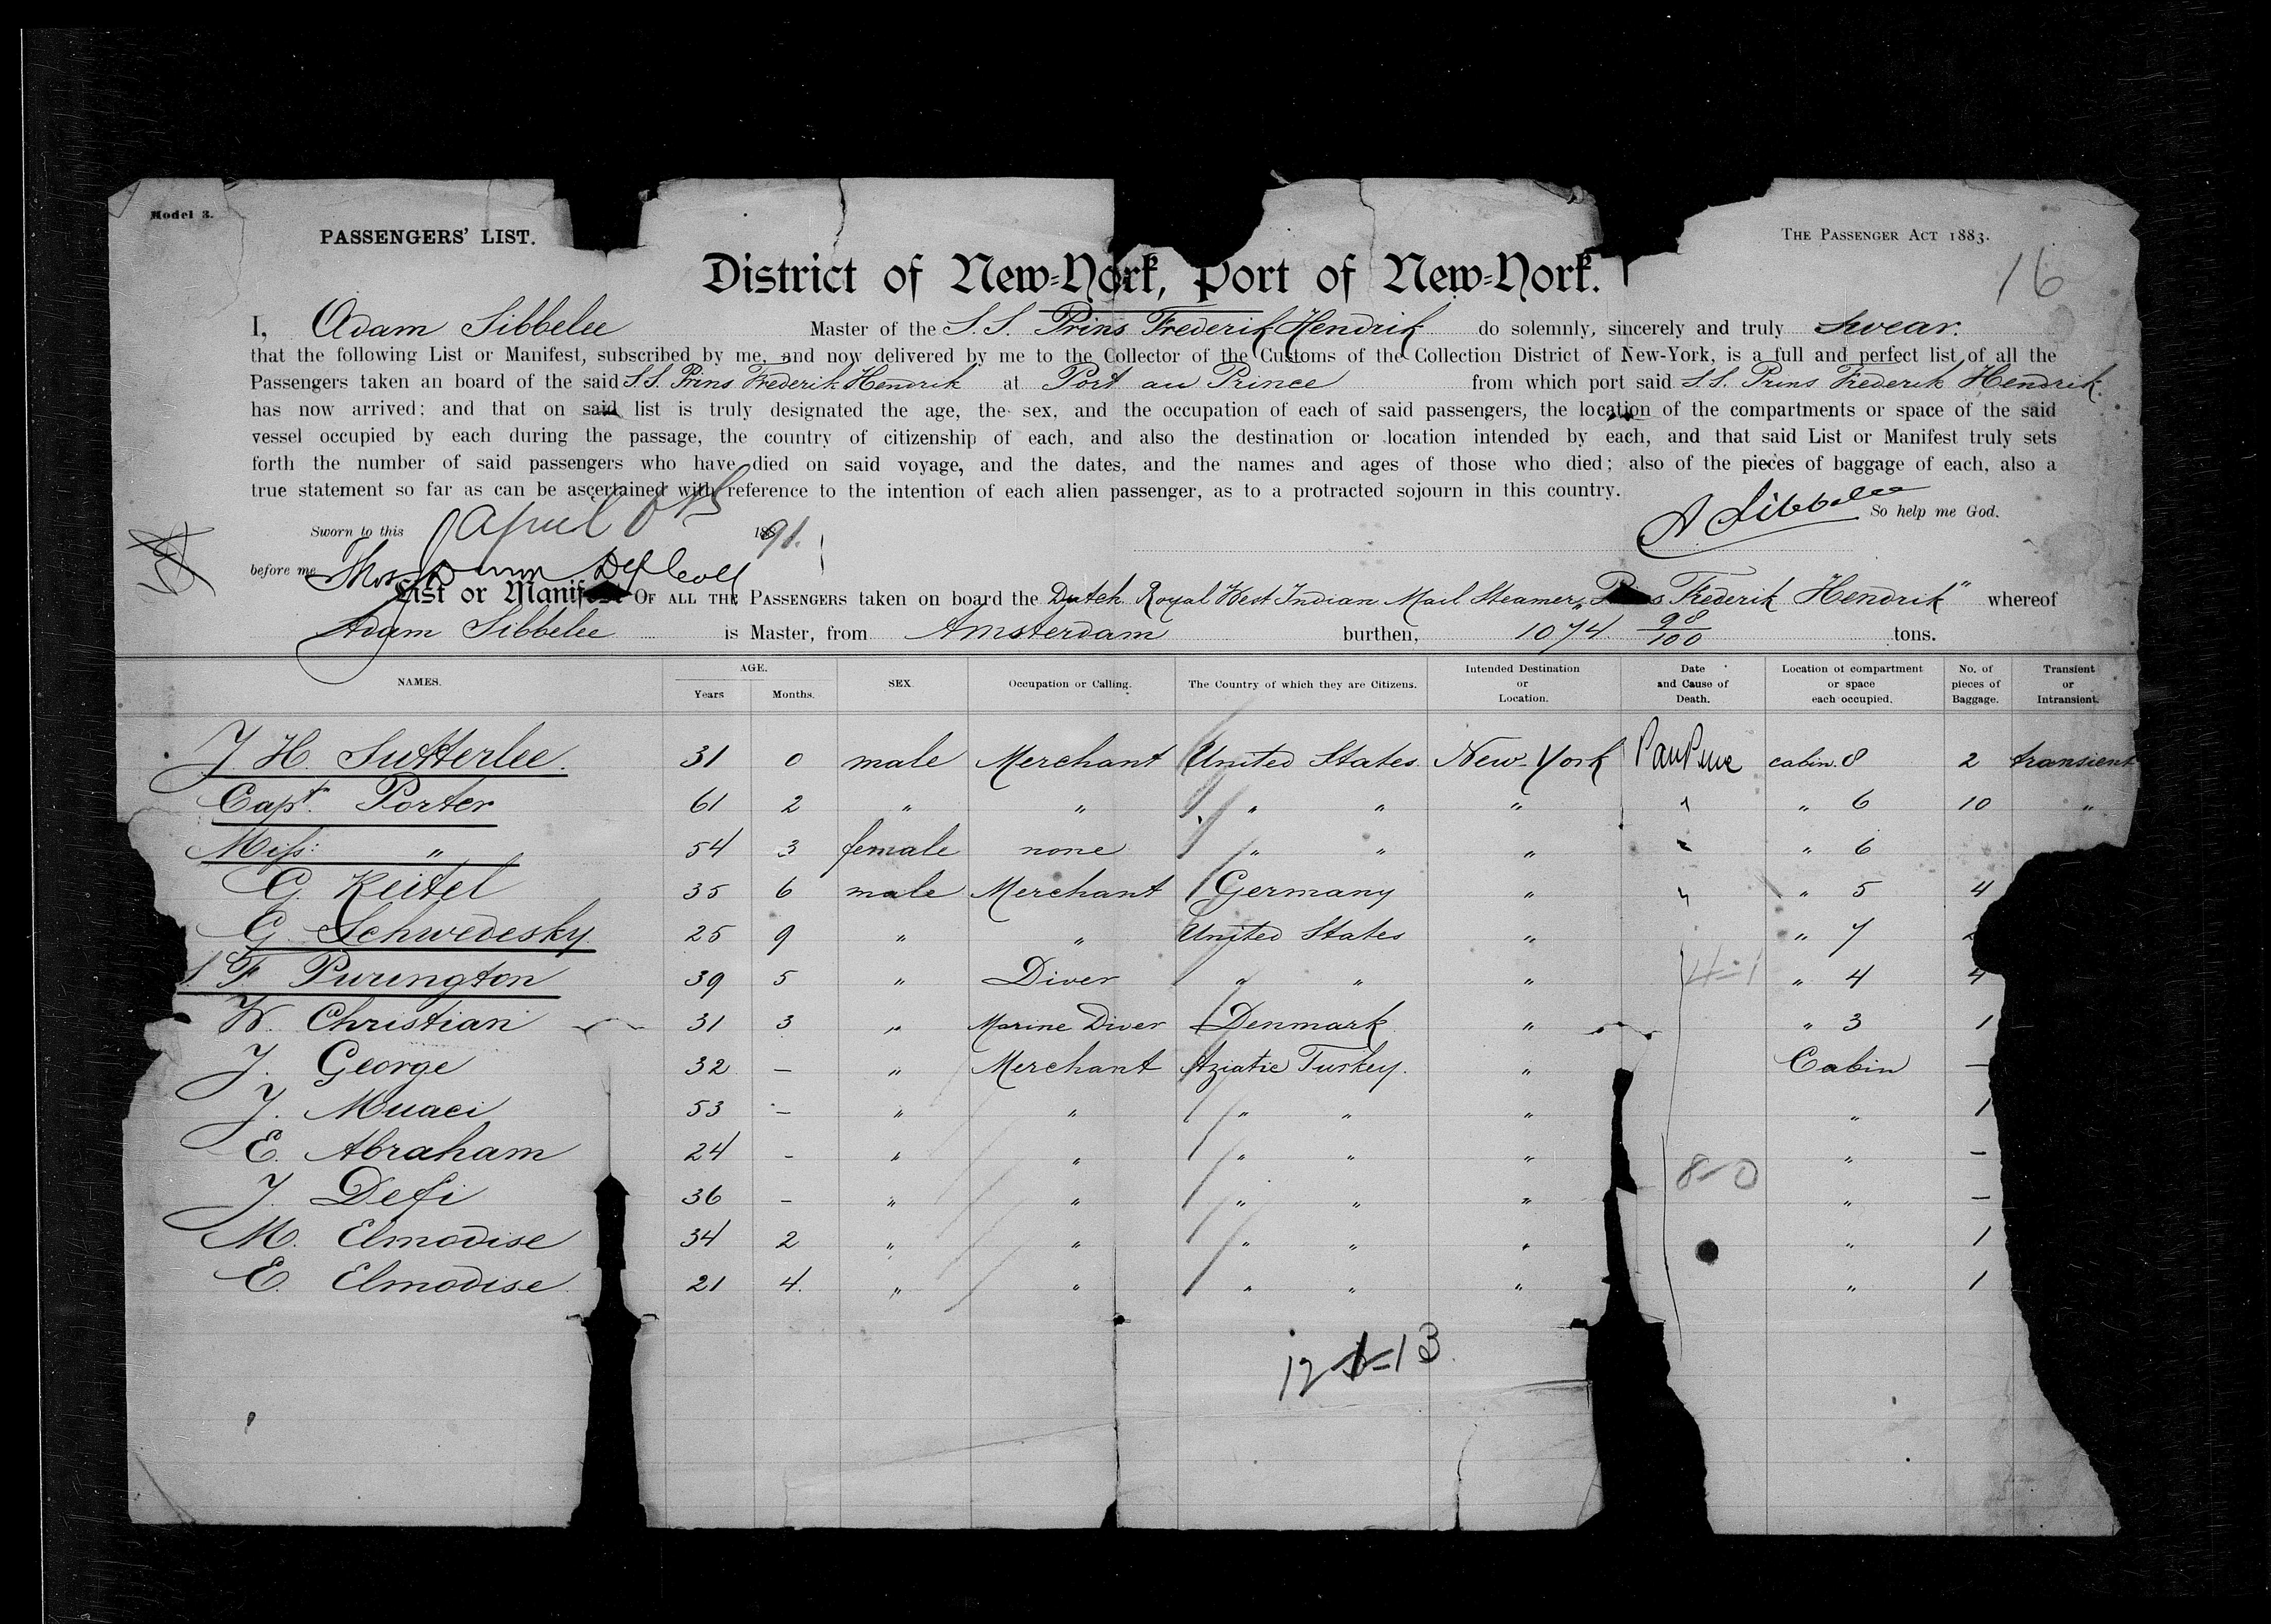 Model 3.
PASSENGERS' LIST.
THE PASSENGER ACT 1883.
16
District of New-York, Port of New-York.
I, Adam Sibbelee Master of the S.S. Prins Frederik Hendrik do solemnly, sincerely and truly swear.
that the following List or Manifest, subscribed by me, and now delivered by me to the Collector of the Customs of the Collection District of New-York, is a full and perfect list of all the
Passengers taken an board of the said S.S. Prins Frederik Hendrik at Port au Prince from which port said S.S. Prins Frederik Hendrik.
has now arrived: and that on said list is truly designated the age, the sex, and the occupation of each of said passengers, the location of the compartments or space of the said
vessel occupied by each during the passage, the country of citizenship of each, and also the destination or location intended by each, and that said List or Manifest truly sets
forth the number of said passengers who have died on said voyage, and the dates, and the names and ages of those who died; also of the pieces of baggage of each, also a
true statement so far as can be ascertained with reference to the intention of each alien passenger, as to a protracted sojourn in this country.
A Sibbelee So help me God.
Sworn to this April 1891.
before me Thos Dunn Dep Coll
List or Manifest OF ALL THE PASSENGERS taken on board the Dutch Royal West Indian Mail Steamer „Prins Frederik Hendrik" whereof
Adam Sibbelee is Master, from Amsterdam burthen, 1074 98/100 tons.
NAMES. AGE. Years Months. SEX. Occupation or Calling. The Country of which they are Citizens. Intended Destination or Location. Date and Cause of Death. Location of compartment or space each occupied. No. of pieces of Baggage. Transient or Intransient.
J H. Sutterlee. 31 0 male Merchant United States New-York PauPrue cabin 8 2 transient
Capt. Porter 61 2 " " " " " " " 6 10 "
Miss: " 54 3 female none " " " " " 6
G. Keitel 35 6 male Merchant Germany " " " 5 4
G. Schwedesky 25 9 " " United States " " 7
F Purington 39 5 " Diver " " " 4-1 " 4 4
W. Christian 31 3 " Marine Diver Denmark " " 3 1
J. George 32 – " Merchant Aziatic Turkey. " Cabin –
J. Muaci 53 – " " " " " " 1
E. Abraham 24 - " " " " " " –
J. Defi 36 – " " " " " 8-0 " –
M. Elmodise 34 2 " " " " " " 1
E. Elmodise 21 4. " " " " " " 1
12 1=13